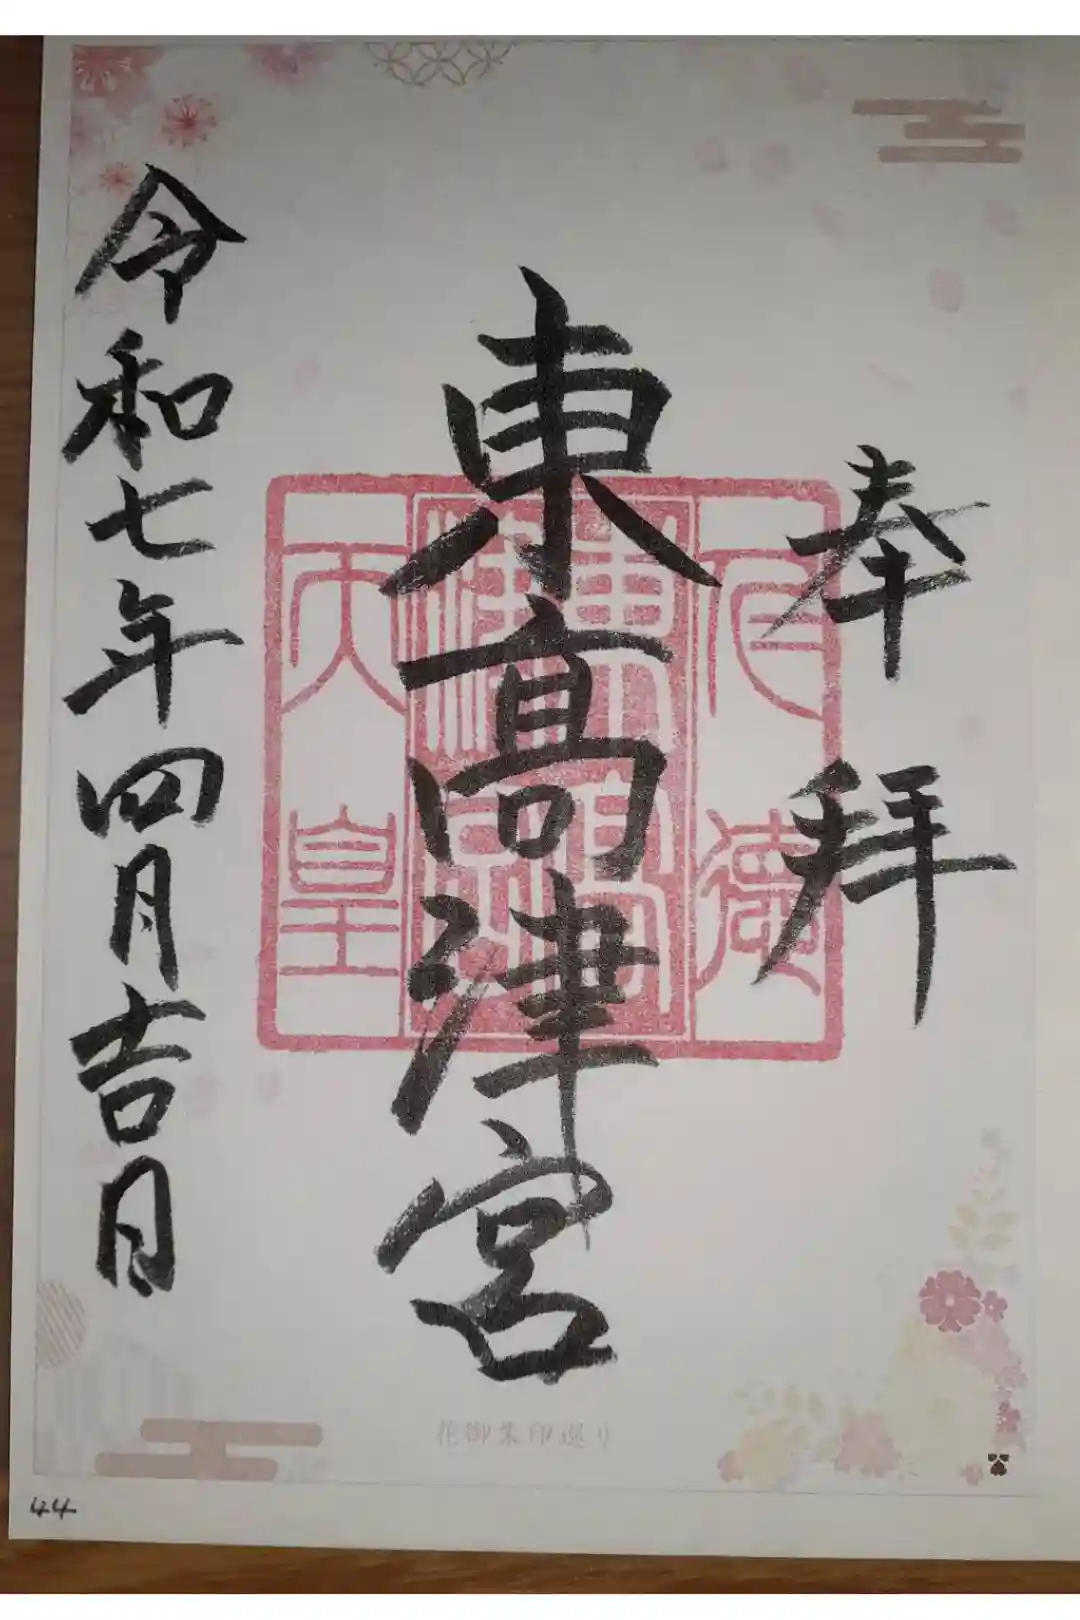 奉拝
仁徳
東高津宮
天皇
東高津宮
令和七年四月吉日
花御朱印巡り
44